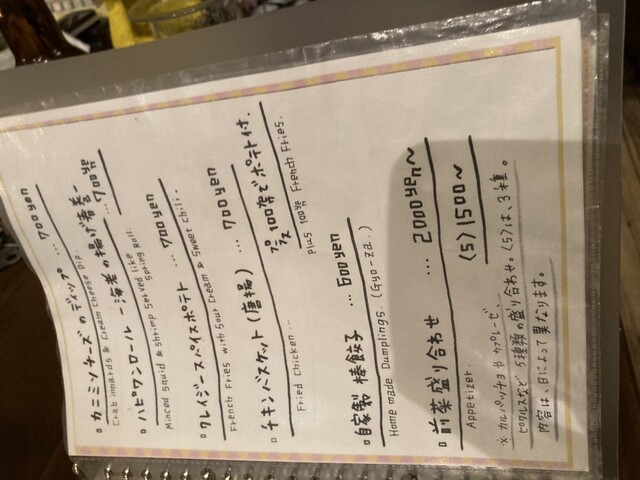 ▫ カニミソチーズのディップ ... 700yen
Crab innards & Cream Cheese Dip.
▫ ハピワンロール ー海老の揚げ春巻ー ... 700yen
Minced Squid & Shrimp Served like Spring Roll.
▫ クレイジースペイスポテト ... 700yen
French Fries with Sour Cream & Sweet Chili.
▫ チキンバスケット (唐揚) ... 700yen
Fried Chicken... プラス100円でポテト付.
Plus 100yen French Fries.
▫ 自家製 棒餃子 ... 600yen
Home made Dumplings. (Gyo-za.)
▫ 前菜盛り合わせ ... 2000yen〜
Appetizer. (S) 1500〜
※カルパッチョやカプレーゼ、
ピクルスなど5種類の盛り合わせ。(S)は、3種。
内容は、日によって異なります。